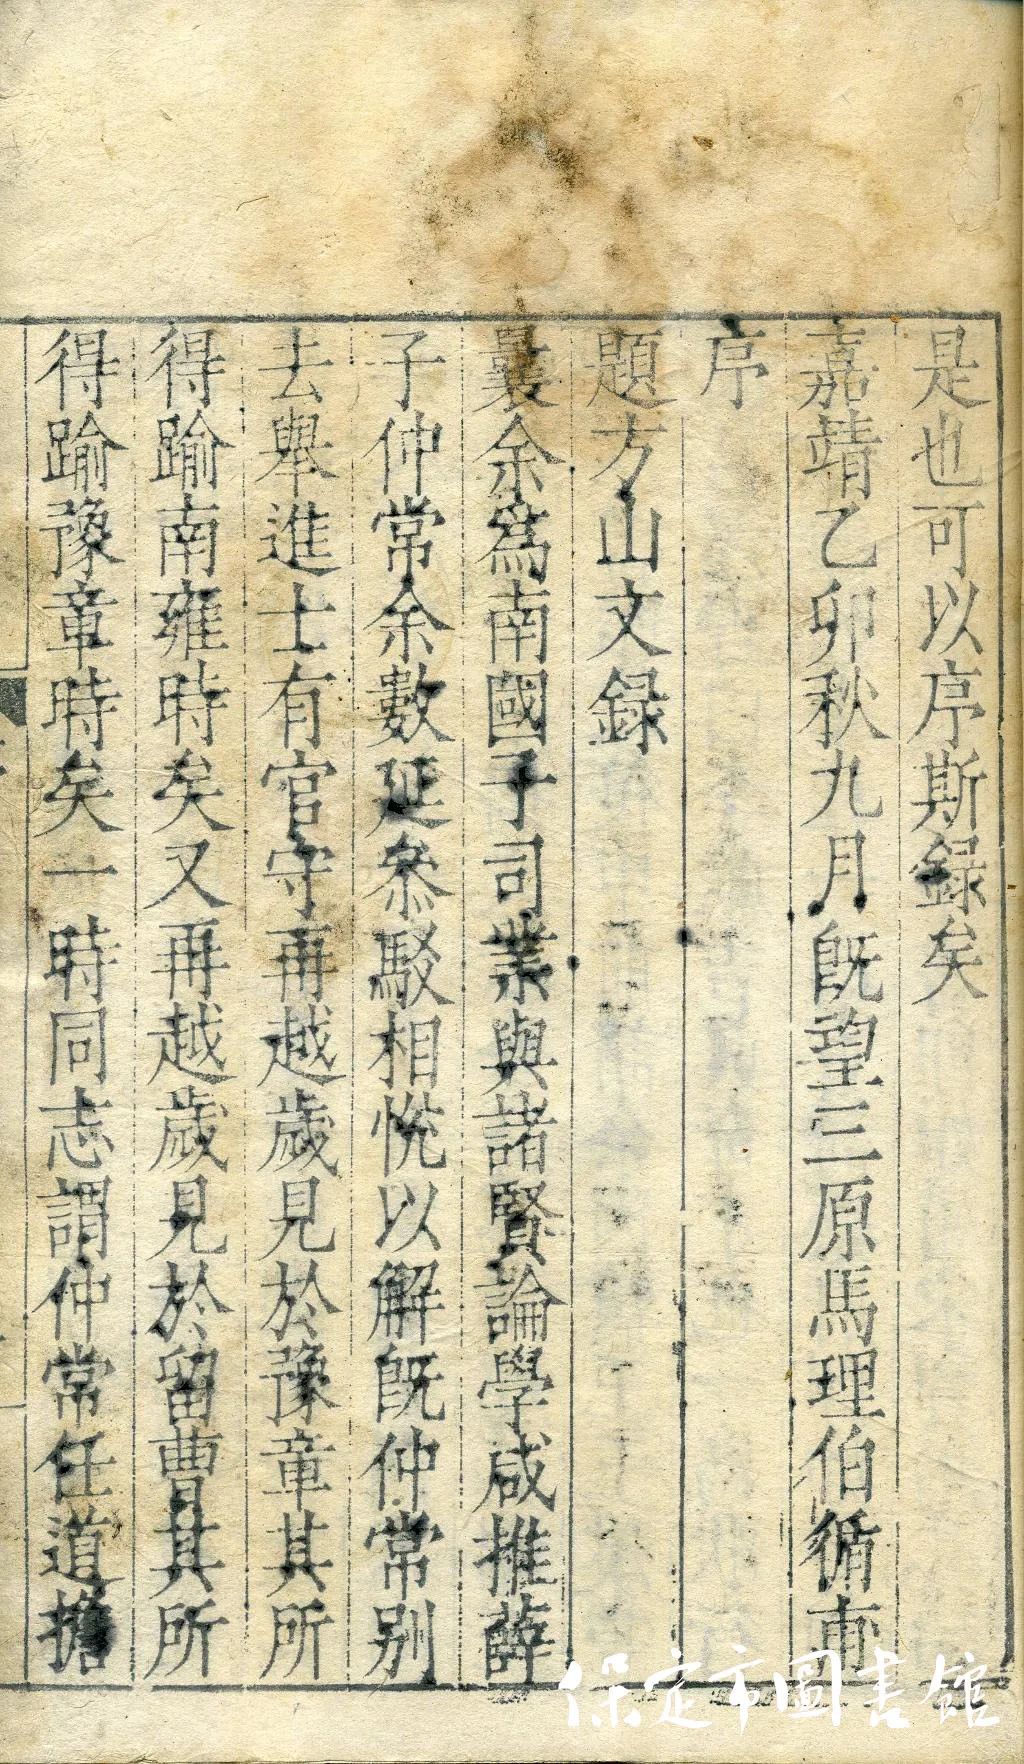 是也可以序斯録矣
嘉靖乙卯秋九月旣望三原馬理伯循甫
序
題方山文録
曩余爲南國子司業與諸賢論學咸推薛
子仲常余數延叅駁相悅以解旣仲常別
去舉進士有官守再越歲見於豫章其所
得踰南雍時矣又再越歲見於留曹其所
得踰豫章時矣一時同志謂仲常任道擔
保定市圖書館